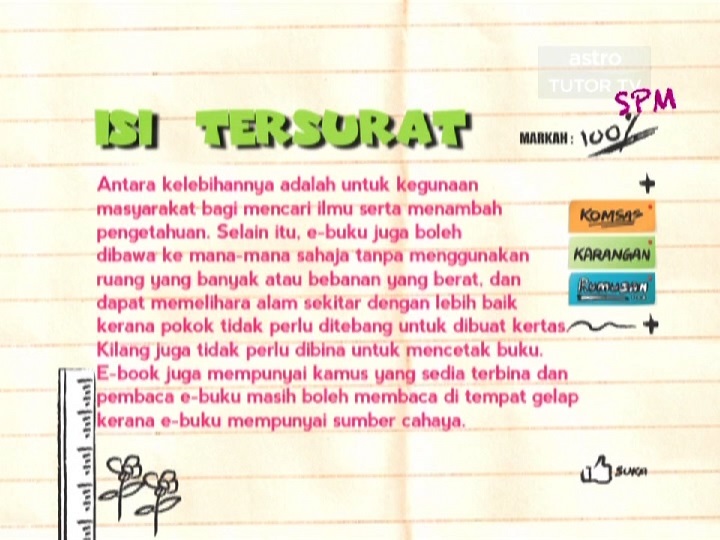 astro
TUTOR TV
SPM
ISI TERSURAT
MARKAH : 100%
Antara kelebihannya adalah untuk kegunaan
masyarakat bagi mencari ilmu serta menambah
pengetahuan. Selain itu, e-buku juga boleh
dibawa ke mana-mana sahaja tanpa menggunakan
ruang yang banyak atau bebanan yang berat, dan
dapat memelihara alam sekitar dengan lebih baik
kerana pokok tidak perlu ditebang untuk dibuat kertas.
Kilang juga tidak perlu dibina untuk mencetak buku.
E-book juga mempunyai kamus yang sedia terbina dan
pembaca e-buku masih boleh membaca di tempat gelap
kerana e-buku mempunyai sumber cahaya.
KOMSAS
KARANGAN
RUMUSAN
SUKA